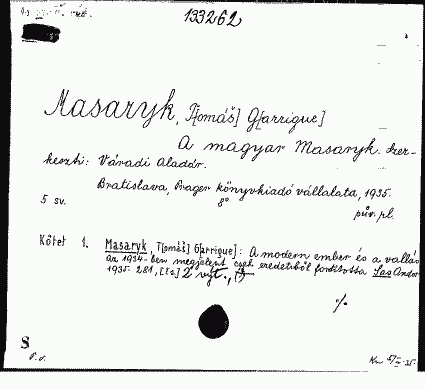 133262
Masaryk, T[omáš] G[arrigue]
A magyar Masaryk. Szer-
keszti: Váradi Aladár.
Bratislava, Prager könyvkiadó vállalata, 1935.
5 sv. 8°
pův. pl.
Kötet 1. Masaryk, T[omáš] G[arrigue]: A modern ember és a vallás
Az 1934-ben megjelent cseh eredetiből fordította Sas Andor
1935. 281, [1s.] 2 výt.,
%
S